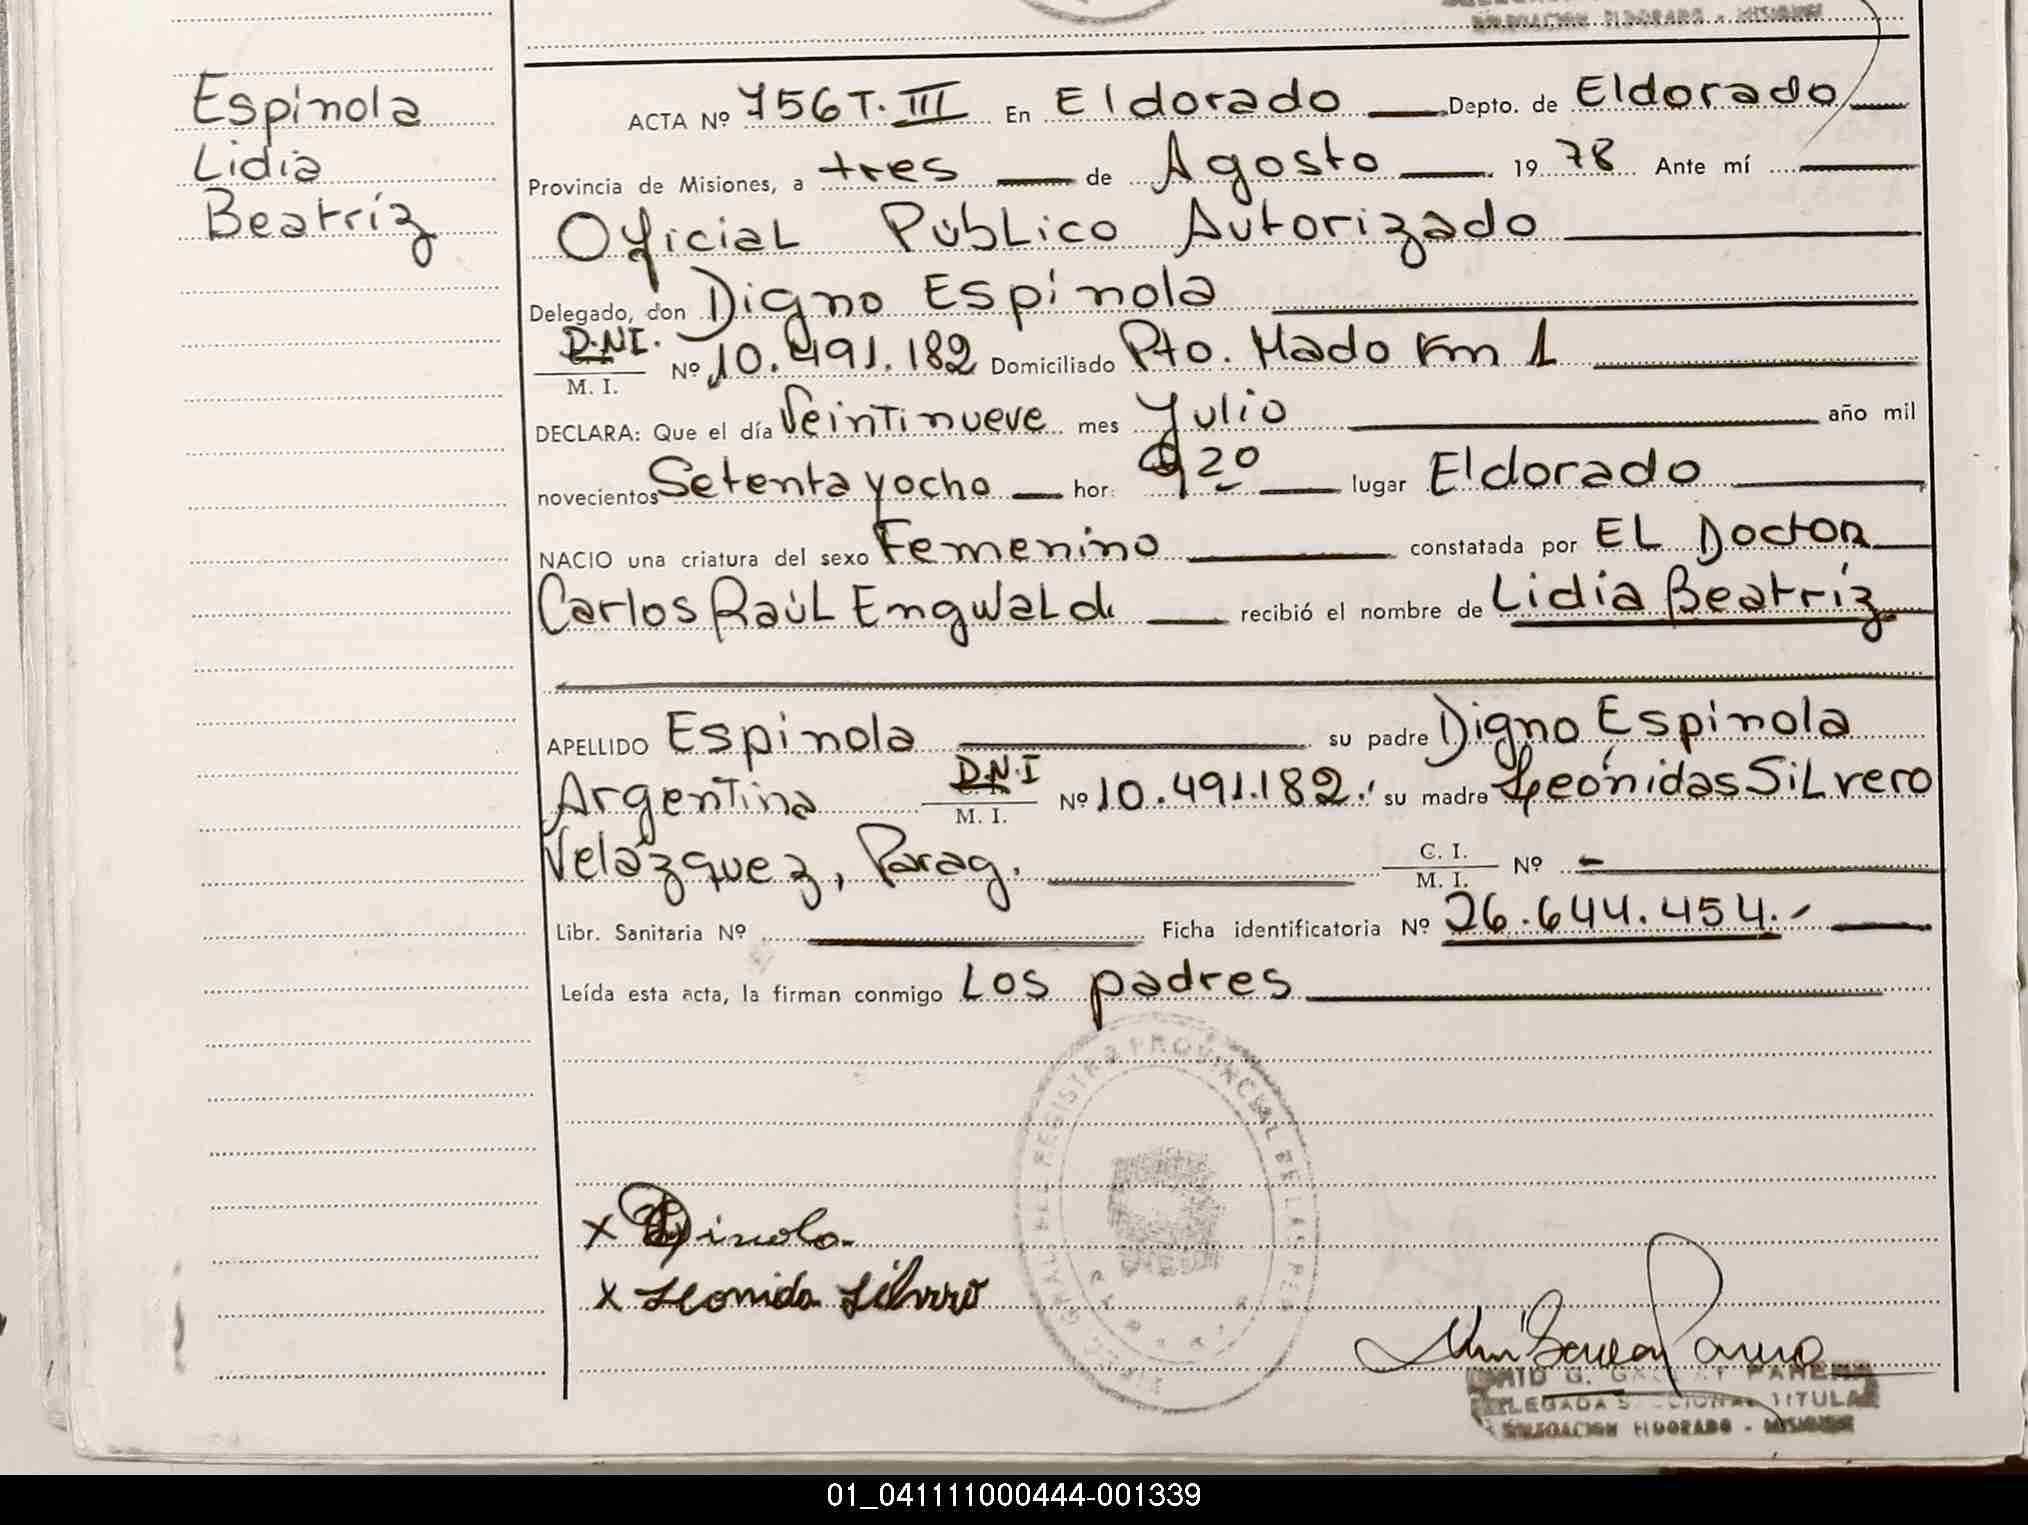 DELEGACION ELDORADO - MISIONES
Espinola
Lidia
Beatríz
ACTA Nº 756 T. III En Eldorado Depto. de Eldorado
Provincia de Misiones, a tres de Agosto 1978 Ante mí
Oficial Público Autorizado
Delegado, don Digno Espínola
D.N.I.
M. I. Nº 10.491.182 Domiciliado Pto. Mado Km 1
DECLARA: Que el día Veintinueve mes Julio año mil
novecientos Setenta y ocho hor: 9 20 lugar Eldorado
NACIO una criatura del sexo Femenino constatada por EL Doctor
Carlos Raúl Engwald recibió el nombre de Lidia Beatríz
APELLIDO Espínola su padre Digno Espínola
Argentina D.N.I M. I. Nº 10.491.182. su madre Leónidas Silvero
Velázquez, Parag. C. I. M. I. Nº
Libr. Sanitaria Nº Ficha identificatoria Nº 26.644.454.-
Leída esta acta, la firman conmigo Los padres
GRAL DEL REGISTRO PROVINCIAL DE LAS PERS
x
x Leonida Silvero
DELEGADA SECCIONAL TITULAR
DELEGACION ELDORADO - MISIONES
01_041111000444-001339